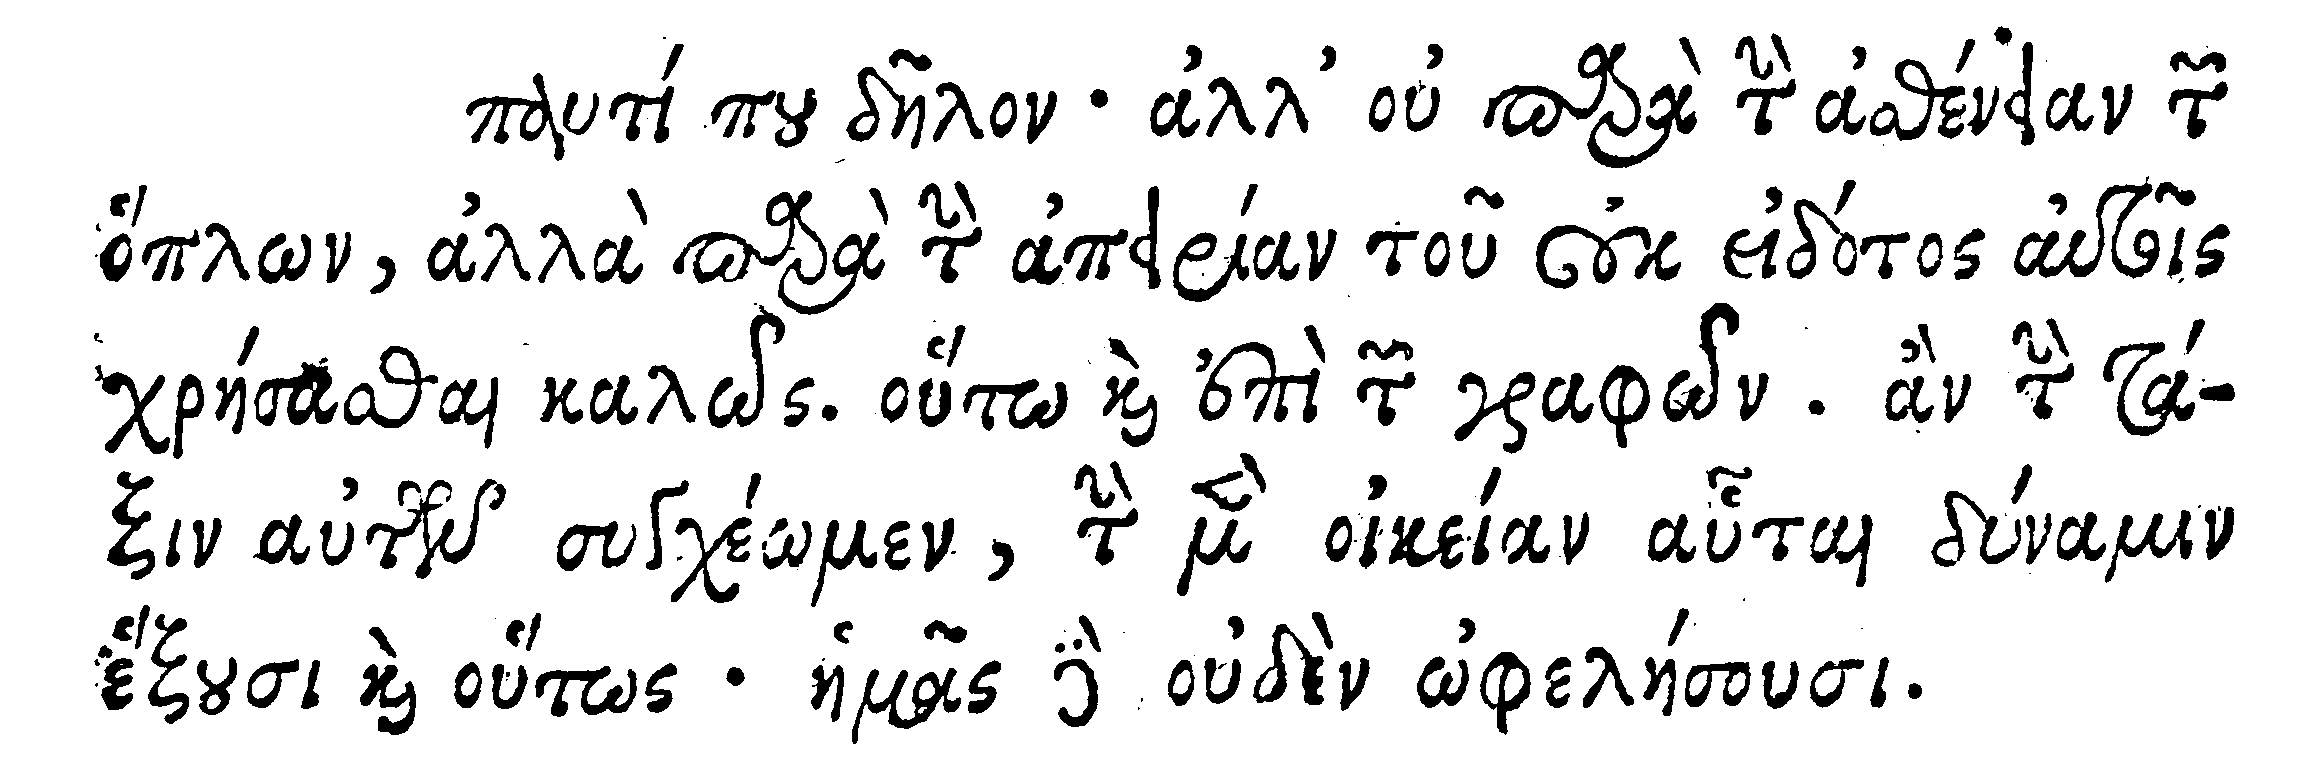 παντί που δῆλον· ἀλλ' οὐ παρὰ τὴν ἀσθένειαν τῶν
ὅπλων, ἀλλὰ παρὰ τὴν ἀπειρίαν τοῦ οὐκ εἰδότος αὐτοῖς
χρήσασθαι καλῶς. οὕτω καὶ ἐπὶ τῶν γραφῶν. ἂν τὴν τά-
ξιν αὐτῶν συγχέωμεν, τὴν μὲν οἰκείαν αὗται δύναμιν
ἕξουσι καὶ οὕτως· ἡμᾶς δὲ οὐδὲν ὠφελήσουσι.